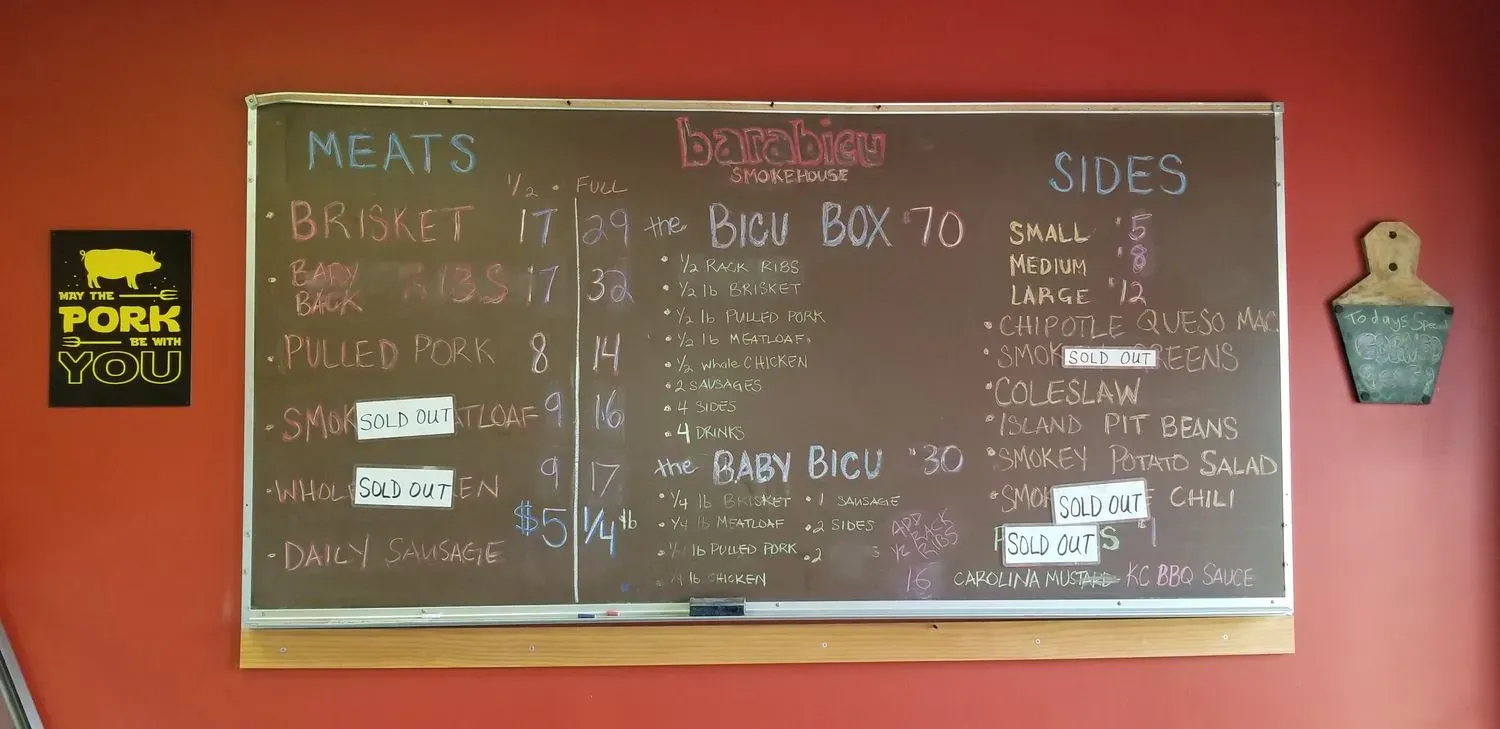 MAY THE
PORK
BE WITH
YOU
MEATS
1/2 • FULL
• BRISKET 17 29
• BABY BACK RIBS 17 32
• PULLED PORK 8 14
• SMOK SOLD OUT ATLOAF 9 16
• WHOL SOLD OUT EN 9 17
$5 1/4 lb
• DAILY SAUSAGE
barabicu
SMOKEHOUSE
the BICU BOX $70
• 1/2 RACK RIBS
• 1/2 lb BRISKET
• 1/2 lb PULLED PORK
• 1/2 lb MEATLOAF
• 1/2 whole CHICKEN
• 2 SAUSAGES
• 4 SIDES
• 4 DRINKS
the BABY BICU $30
• 1/4 lb BRISKET • 1 SAUSAGE
• 1/4 lb MEATLOAF • 2 SIDES
• 1/4 lb PULLED PORK • 2
1/4 lb CHICKEN
ADD
1/2 RACK
RIBS
16
SIDES
SMALL $5
MEDIUM $8
LARGE $12
• CHIPOTLE QUESO MAC
• SMOK SOLD OUT REENS
• COLESLAW
• ISLAND PIT BEANS
• SMOKEY POTATO SALAD
• SMO SOLD OUT CHILI
SOLD OUT S $1
CAROLINA MUSTARD - KC BBQ SAUCE
Todays Special